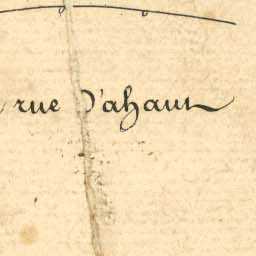 rue D'ahaut